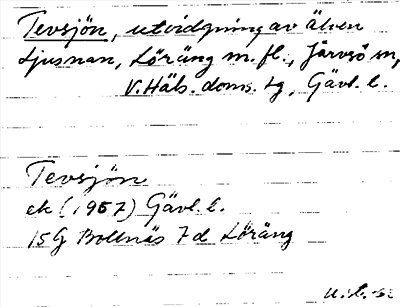 Tevsjön, utvidgning av älven
Ljusnan, Löräng m.fl., Järvsö sn,
V. Häls. doms. tg, Gävl. l.
Tevsjön
ek (1957) Gävl. l.
15G Bollnäs 7d Löräng